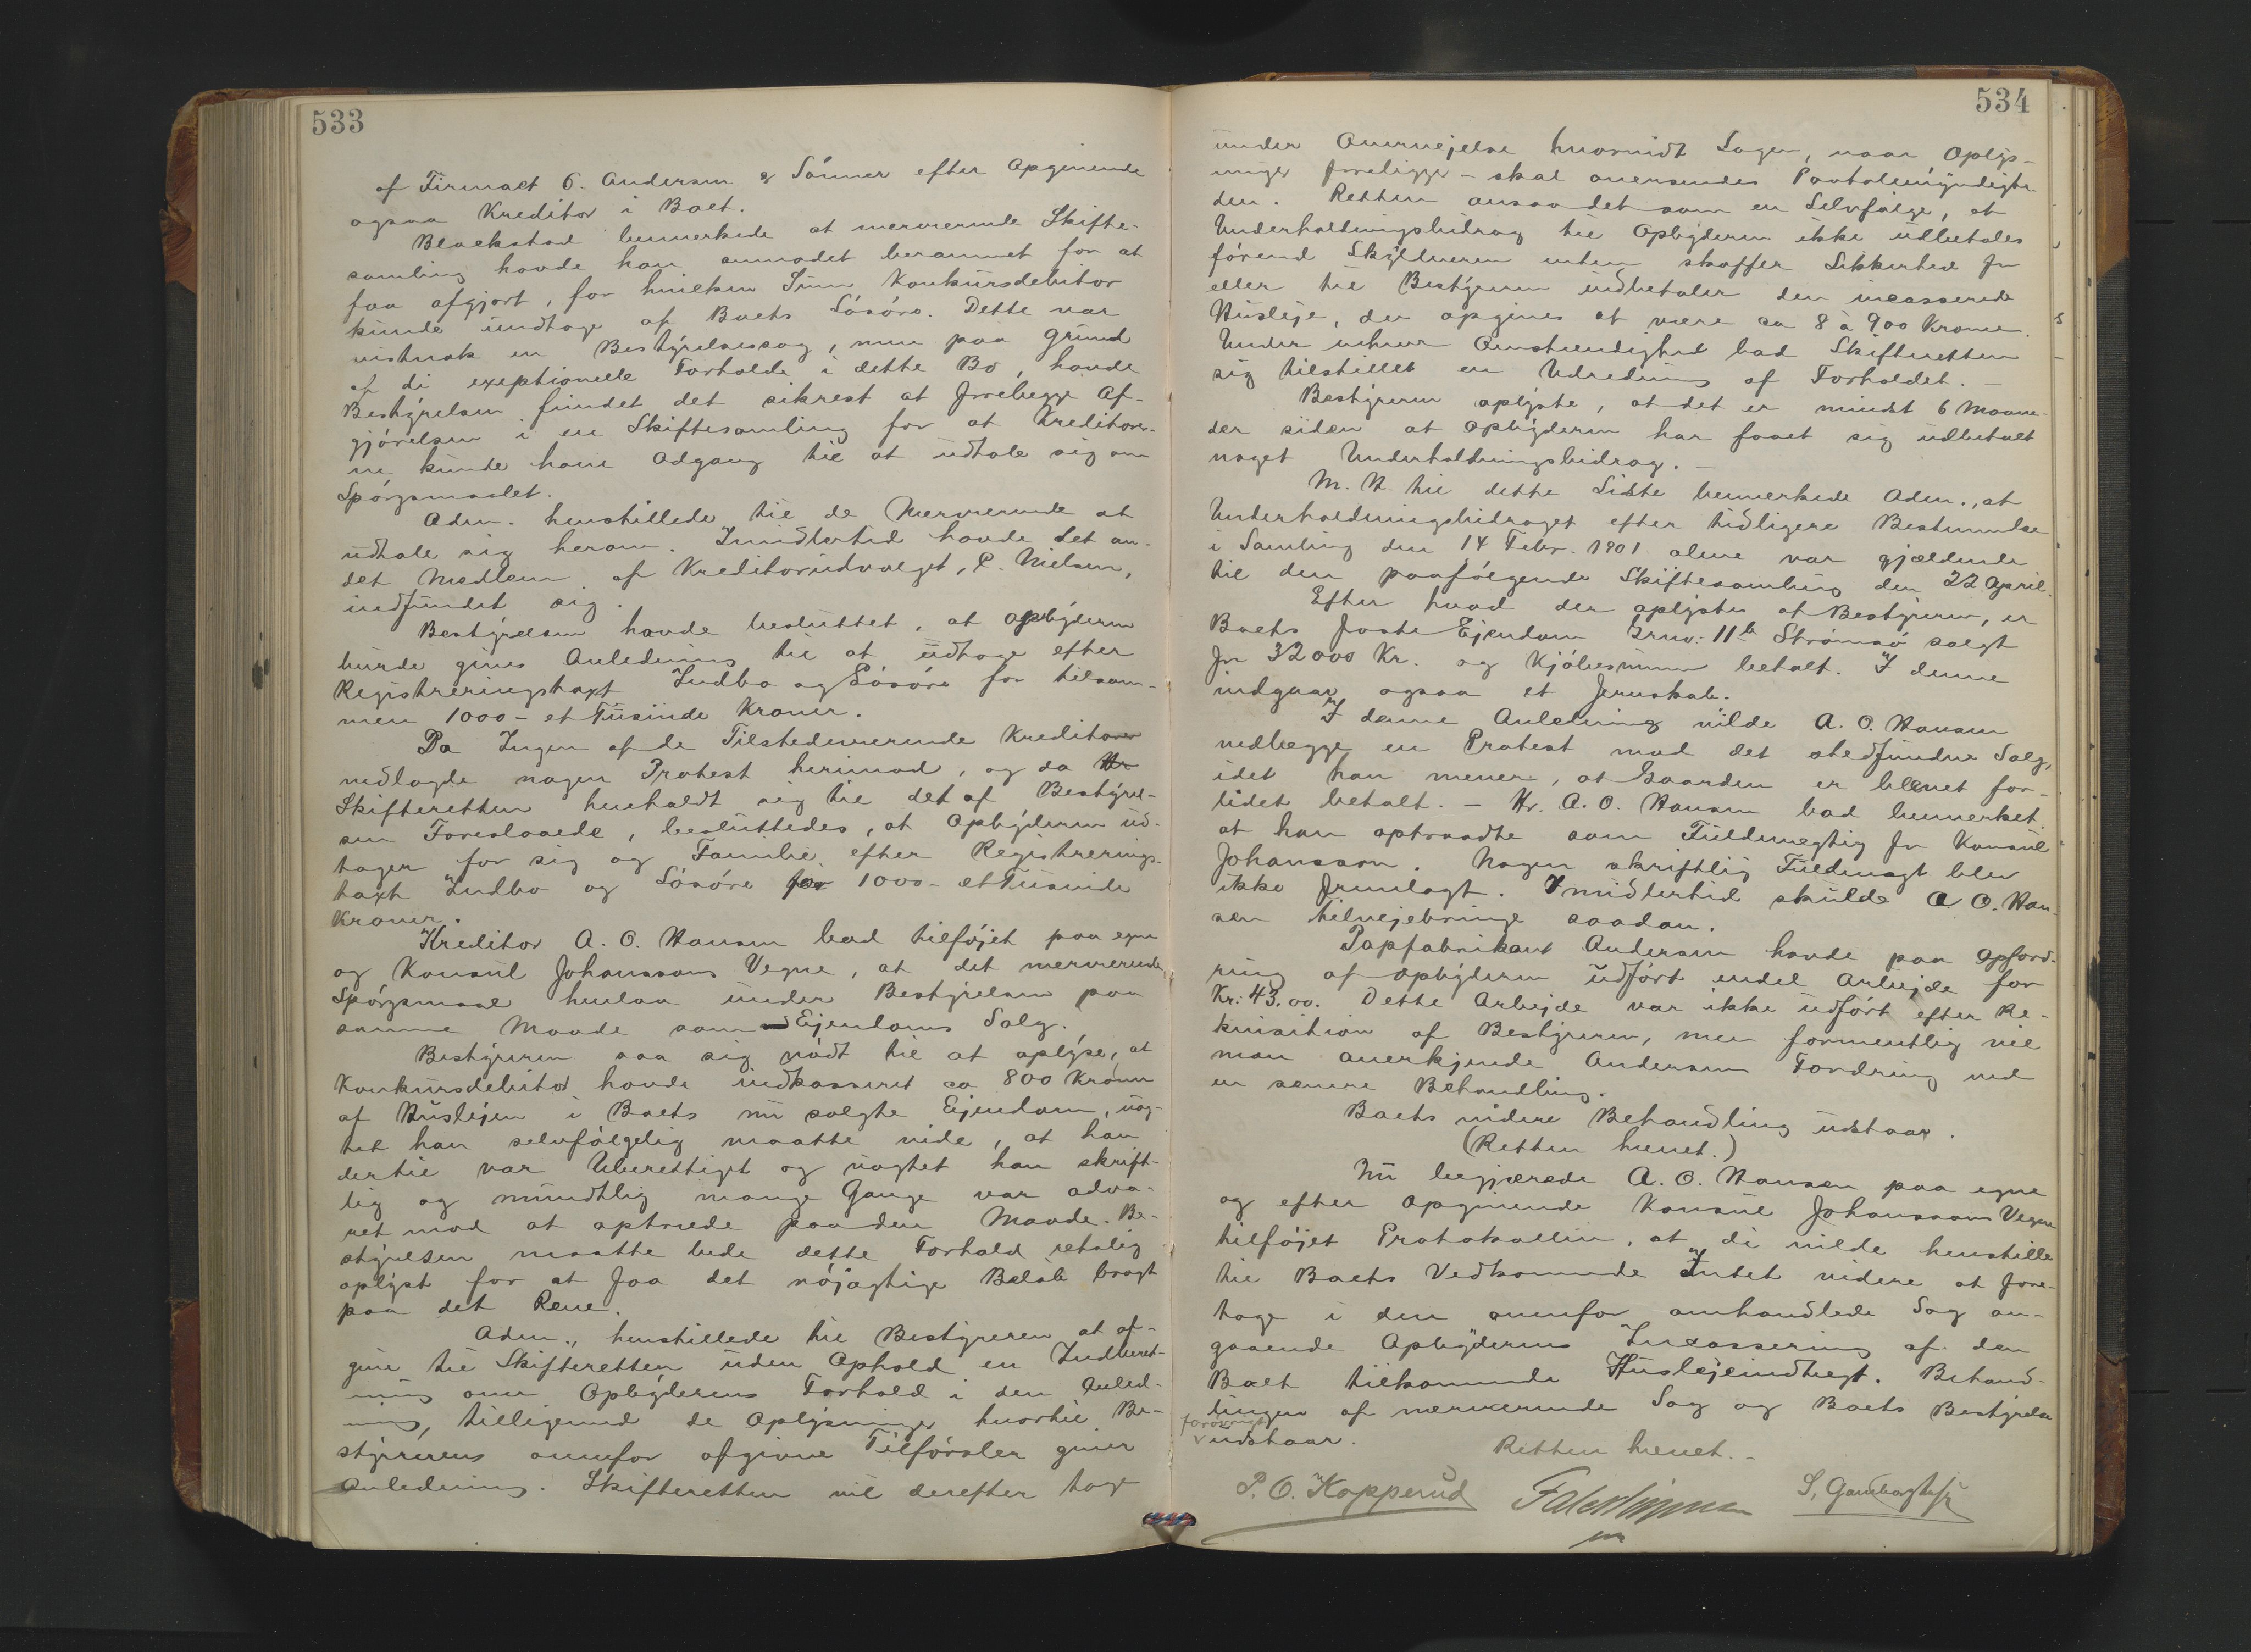 533
af Firmaet C. Andersen & Sønner efter Opgivende
ogsaa Kreditor i Boet.
Blackstad bemerkede at nerværende Skifte-
samling havde han anmodet berammet for at
faa afgjort, for hvilken Sum Konkursdebitor
kunde undtage af Boets Løsøre. Dette var
vistnok en Bestyrelsessag, men paa Grund
af de exeptionelle Forholde i dette Bo, havde
Bestyrelsen fundet det sikrest at forelegge Af-
gjørelsen i en Skiftesamling for at Kreditorer-
ne kunde have Adgang til at udtale sig om
Spørgsmaalet.
Adm. henstillede til de Nerværende at
udtale sig herom. Imidlertid havde det an-
det Medlem af Kreditorudvalget, P. Nielsen,
indfundet sig.
Bestyrelsen havde besluttet, at Opbyderen
burde gives Anledning til at udtage efter
Registreringstaxt Indbo og Løsøre for tilsam-
men 1000 - et Tusinde Kroner.
Da Ingen af de Tilstedeværende Kreditorer
nedlagde nogen Protest herimod, og da
Skifteretten henholdt sig til det af Bestyrel-
sen Foreslaaede, besluttedes, at Opbyderen ud-
tager for sig og Familie efter Registrerings-
taxt Indbo og Løsøre for 1000 - et Tusinde
Kroner.
Kreditor A. O. Hansen bad tilføjet paa egne
og Konsul Johanssons Vegne, at det nerværende
Spørgsmaal henlaa under Bestyrelsen paa
samme Maade som Ejendoms Salg.
Bestyreren saa sig nødt til at oplyse, at
Konkursdebitor havde indkasseret ca 800 Kroner
af Huslejen i Boets nu solgte Ejendom, uag-
tet han selvfølgelig maatte vide, at han
dertil var Uberettiget og uagtet han skrift-
lig og mundtlig mange Gange var adva-
ret mod at optræde paa den Maade. Be-
styrelsen maatte bede dette Forhold retslig
oplyst for at faa det nøjagtige Beløb bragt
paa det Rene.
Adm., henstillede til Bestyreren at af-
give til Skifteretten uden Ophold en Indberet-
ning om Opbyderens Forhold i den Anled-
ning, tilligemed de Oplysninger hvortil Be-
styrerens ovenfor afgivne Tilførsler giver
Anledning. Skifteretten vil derefter tage
534
under Overvejelse hvorvidt Sagen, naar Oplys-
ninger foreligger - skal oversendes Paatalemyndighe
den. Retten ansaa det som en Selvfølge, at
Underholdningsbidrag til Opbyderen ikke udbetales
førend Skyldneren enten skaffer Sikkerhed for
eller til Bestyreren indbetaler den incasserede
Husleje, der opgives at være ca 8 à 900 Kroner.
Under enhver Omstændighed bad Skifteretten
sig tilstillet en Udredning af Forholdet. -
Bestyreren oplyste, at det er mindst 6 Maane-
der siden at Opbyderen har faaet sig udbetalt
noget Underholdningsbidrag. -
M. H. til dette Sidste bemerkede Adm., at
Underholdningsbidraget efter tidligere Bestemmelse
i Samling den 14 Febr. 1901 alene var gjældende
til den paafølgende Skiftesamling den 22 April.
Efter hvad der oplystes af Bestyreren, er
Boets faste Ejendom Grno: 11b Strømsø solgt
for 32000 Kr. og Kjøbesummen betalt. I denne
indgaar ogsaa et Jernskab.
I denne Anledning vilde A. O. Hansen
nedlegge en Protest mod det stedfundne Salg,
idet han mener, at Gaarden er blevet for-
lidet betalt. - Hr. A. O. Hansen bad bemerket
at han optraadte som Fuldmegtig for Konsul
Johansson. Nogen skriftlig Fuldmagt blev
ikke fremlagt. Imidlertid skulde A O. Han-
sen tilvejebringe saadan.
Papfabrikant Andersen havde paa Opford-
ring af Opbyderen udført endel Arbejde for
Kr: 43.00. Dette Arbejde var ikke udført efter Re-
kvisition af Bestyreren, men formentlig vil
man anerkjende Andersens Fordring ved
en senere Behandling.
Boets videre Behandling udstaar.
(Retten hævet.)
Nu begjærede A. O. Hansen paa egne
og efter Opgivende Konsul Johanssons Vegne
tilføjet Protokollen, at de vilde henstille
til Boets Vedkommende Intet videre at fore-
tage i den ovenfor omhandlede Sag an-
gaaende Opbyderens Incassering af den
Boet tilkommende Huslejeindtegt. Behand-
lingen af nerværende Sag og Boets Bestyrelse
forøvrigt
udstaar.
Retten hævet. -
P. O. Kopperud